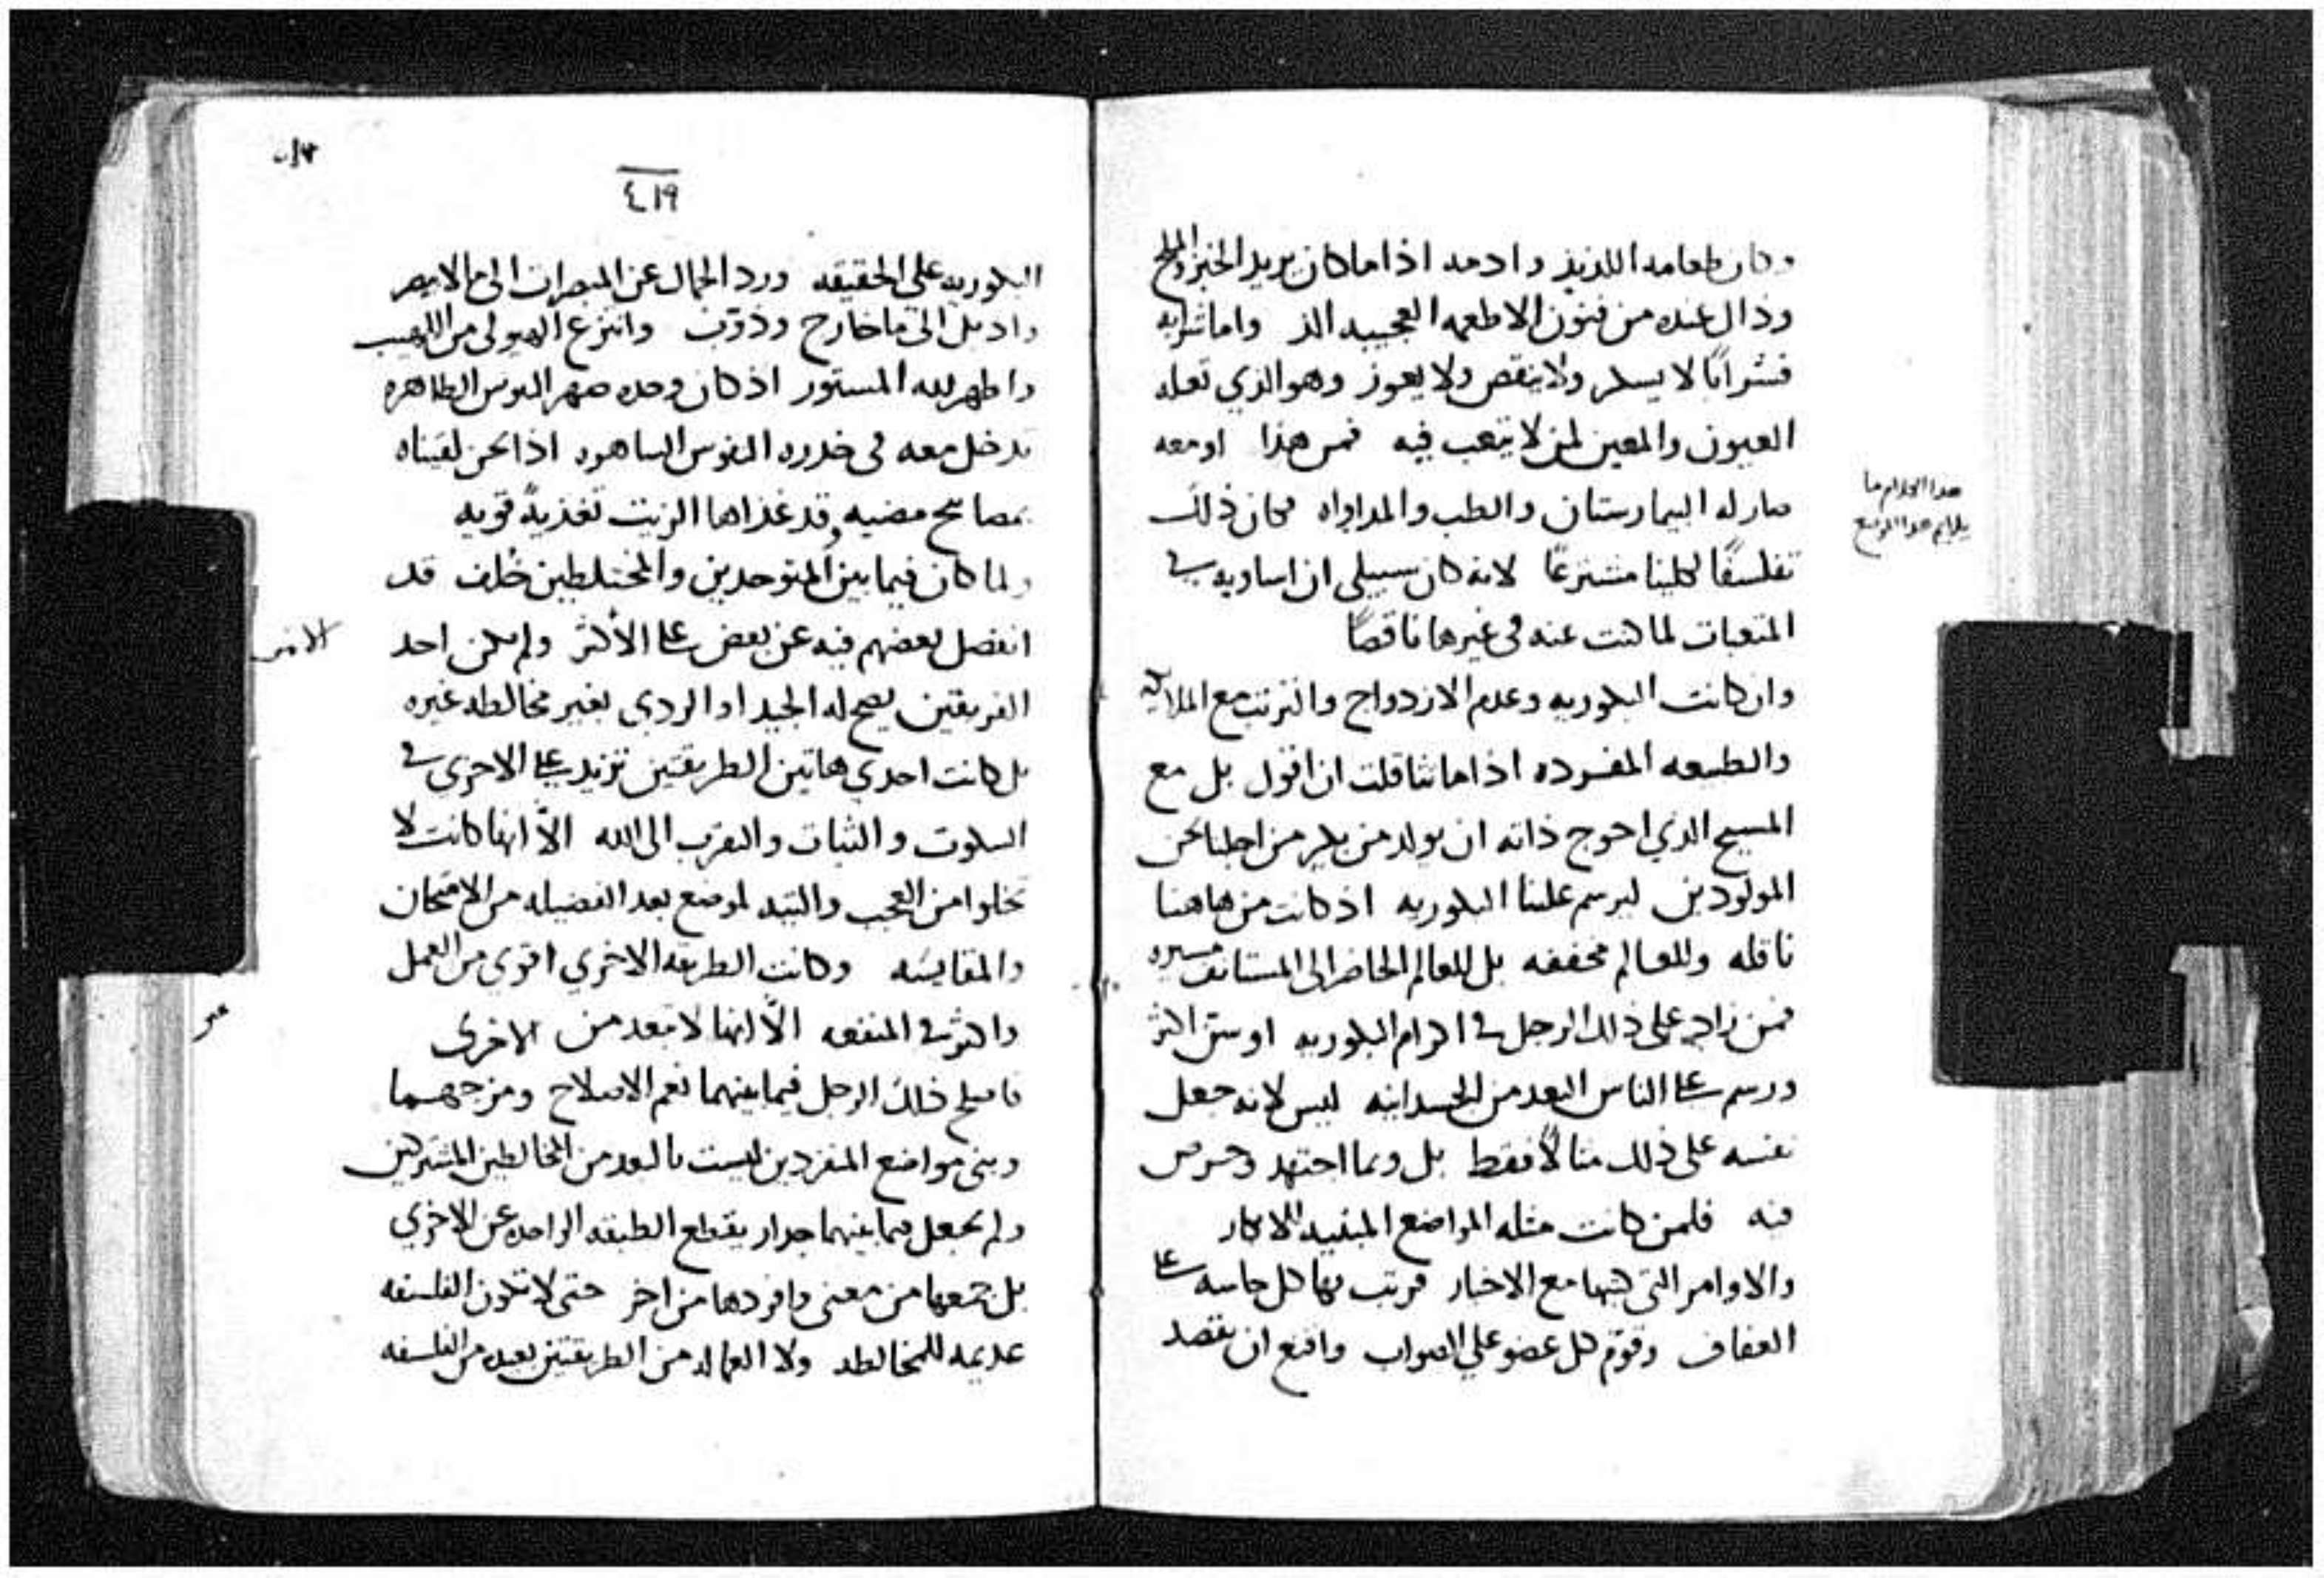 وكان طعامه اللذيذ وادمه اذا ما كان يريد الخبز والملح
وذاك عنده من فنون الاطعمه العجيبه الذ واما شرابه
فشرابًا لا يسكر ولا ينقص ولا يعوز وهو الذي تعله
العيون والمعين لمن لا يتعب فيه فمن هذا او معه
صار له البيمارستان والطب والمداواه فكان ذلك
تفلسفًا لكلينا مشترعًا لانه كان سبيلي ان اساويه في
المتعبات لما كنت عنه في غيرها ناقصًا
وان كانت البكوريه وعدم الازدواج والترتب مع الملايكه
والطبيعه المفرده اذا ما تثاقلت ان اقول بل مع
المسيح الذي احوج ذاته ان يولد من بكر من اجلنا نحن
المولودين ليرسم علينا البكوريه اذ كانت من هاهنا
ناقله وللعالم مخففه بل للعالم الحاضر الى المستانف مسيره
فمن زاد على ذلك الرجل في اكرام البكوريه او سن اكثر
ورسم على الناس البعد من الجسدانيه ليس لانه جعل
نفسه على ذلك مثالًا فقط بل وبما اجتهد وحرص
فيه فلمن كانت مثله المواضع المبنيه للابكار
والاوامر التي كتبها مع الاخبار فرتب بها كل حاسه على
العفاف وقوّم كل عضو على الصواب واقنع ان نقصد
هذا الكلام ما
يلايم هذا الموضع
٤١٩
البكوريه على الحقيقه ورد الجمال عن المبصرات الى ما لا يبصر
واذبل الى ما خارج وذوّب وانتزع الهيولى من اللهيب
واظهر لله المستور اذ كان وحده صهر النفوس الطاهره
تدخل معه في خدره النفوس الساهره اذا نحن لقيناه
بمصابيح مضيه وقد غذاها الزيت تغذيةً قويه
ولما كان فيما بين المتوحدين والمختلطين خلف قد
انفصل بعضهم فيه عن بعض على الأكثر ولم يكن احد
الفريقين يصح له الجيد او الردي بغير مخالطه غيره
بل كانت احدي هاتين الطريقتين تزيد على الاخرى في
السكوت والثبات والتقرب الى الله الّا انها كانت لا
تخلوا من العجب والتيه لموضع بعد الفضيله من الامتحان
والمقايسه وكانت الطريقه الاخري اقوى من العمل
واكثر في المنفعه الّا انها لا تبعد من الاخرى
فاصلح ذلك الرجل فيما بينهما نعم الاصلاح ومزجهما
وبنى مواضع المنفردين ليست بالبعد من المخالطين المشتركين
ولم يجعل فيما بينهما جدار يقطع الطبقه الواحده عن الاخري
بل جمعها من معنى وافردها من اخر حتى لا تكون الفلسفه
عديمه للمخالطه ولا العماله من الطريقتين بعيده من الفلسفه